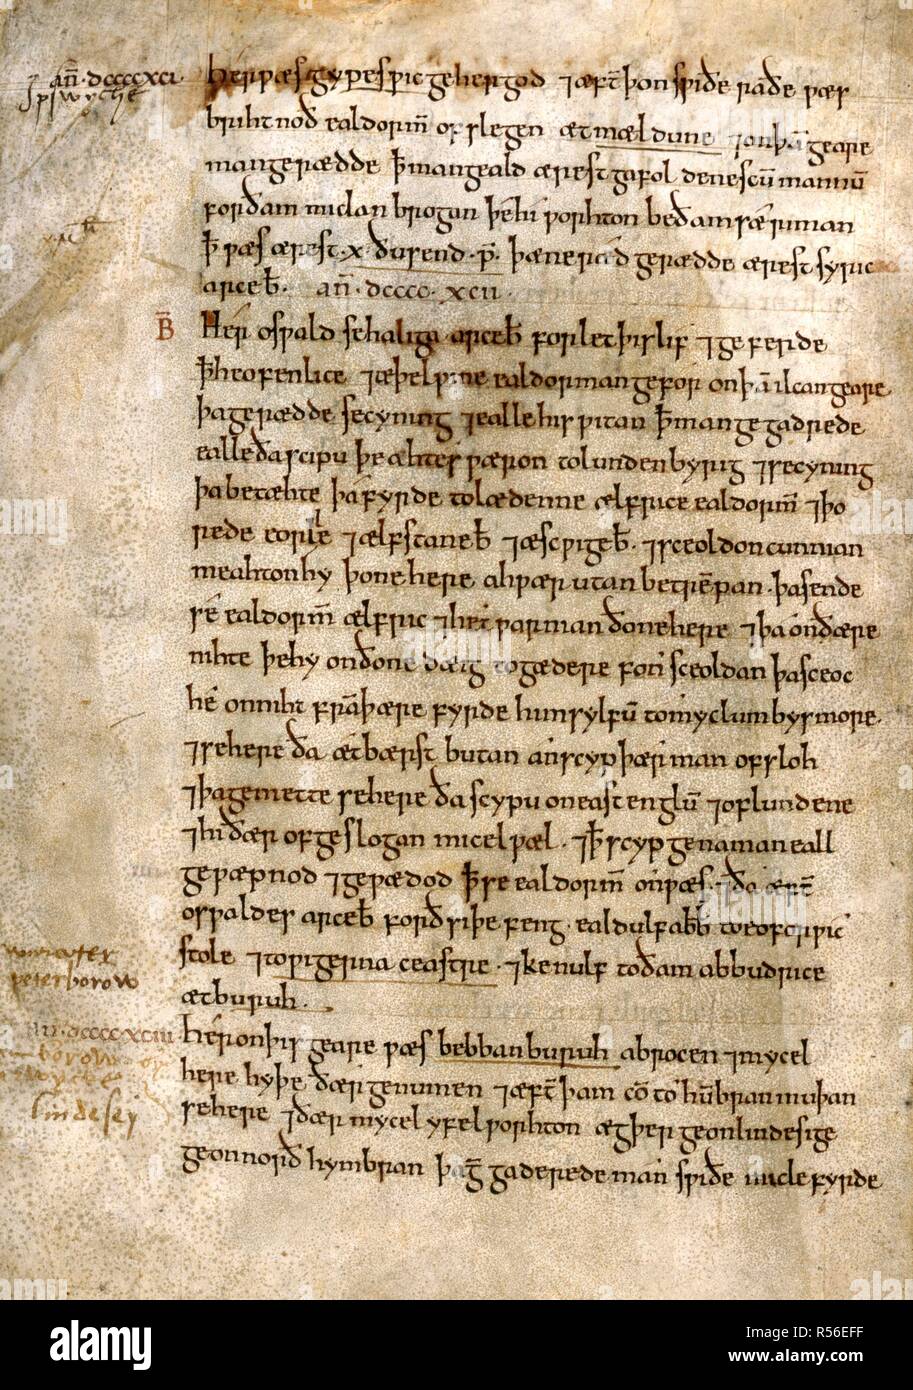 an̄·dcccc xci·
Ipswyche
Her ƿæs gypesƿic gehergod ⁊ æft̄ þon sƿiðe raðe ƿæs
brihtnod ealdorm̄ ofslegen æt mældune ⁊ on þā geare
man gerædde þ̄ man geald ærest gafol deniscū mannū
for ðam miclan brogan þe hi ƿorhton be ðam særiman
þ̄ ƿæs ærest ·x· ðusend ·p̄· þæne ræd gerædde ærest syric
arceb̄· an̄ dcccc·xcii·
Her osƿald se haliga arceb̄ forlet þis lif ⁊ geferde
þ̄ heofenlice ⁊ æþelƿine ealdorman gefor on þā ilcan geare
þa gerædde se cyning ⁊ ealle his ƿitan þ̄ man gegadrede
ealle ða scipu þe ahtes ƿæron to lundenbyrig ⁊ se cyning
þa betæhte þa fyrde to lædenne ælfrice ealdorm̄ ⁊ þo
rede eorle ⁊ ælfstane b̄ ⁊ æscƿige b̄· ⁊ sceoldon cunnian
meahton hy þone here ahƿær utan betreppan· þa sende
se ealdorm̄ ælfric ⁊ het ƿarnian ðone here ⁊ þa on ðære
nihte þe hy on ðone dæig togædere fon sceoldan þa sceoc
he on niht frā þære fyrde him sylfū to myclum bysmore·
⁊ se here ða ætbærst butan an scyp þær man ofsloh
⁊ þa gemette se here ða scypu on eastenglū ⁊ of lundene
⁊ hi ðær ofgeslogan micel ƿæl· ⁊ þ̄ scyp genaman eall
geƿæpnod ⁊ geƿædod þ̄ se ealdorm̄ on ƿæs· ⁊ ða æft̄
osƿaldes arceb̄ forðsiþe feng· ealdulf abb̄ to eoferƿic
stole ⁊ to ƿigerna ceastre· ⁊ kenulf to ðam abbudrice
æt buruh·
worcester
peterborow
an̄·dcccc xciii
Her on þis geare ƿæs bebbanburuh abrocen ⁊ mycel
here hyþe ðær genumen ⁊ æft̄ þam cō to hūbran muþan
se here ⁊ ðær mycel yfel ƿorhton ægþer ge on lindesige
lindesey
ge on norðhymbran þa g̅gaderede man sƿiðe micle fyrde
alamy
Image ID: R56EFF
www.alamy.com